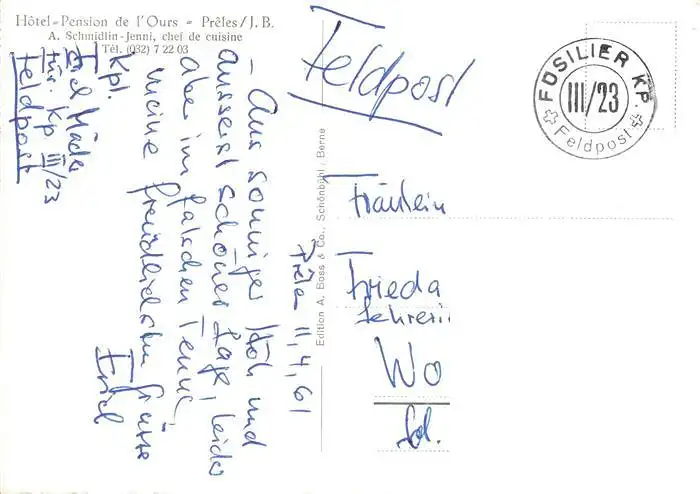 Hôtel-Pension de l'Ours - Prêles/J. B.
A. Schmidlin-Jenni, chef de cuisine
Tél. (032) 7 22 03
Prêles 11,4,61
- Aus sonniger Höh und
äusserst schöner Lage, leider
aber im falschen Tenue,
meine freundlichsten Grüsse
Erich
Kpl.
Füs. Kp III/23
Feldpost
Edition A. Boss & Co., Schönbühl / Berne
Feldpost
FÜSILIER KP
III/23
Feldpost
Fräulein
Frieda
Lehrerin
Wo